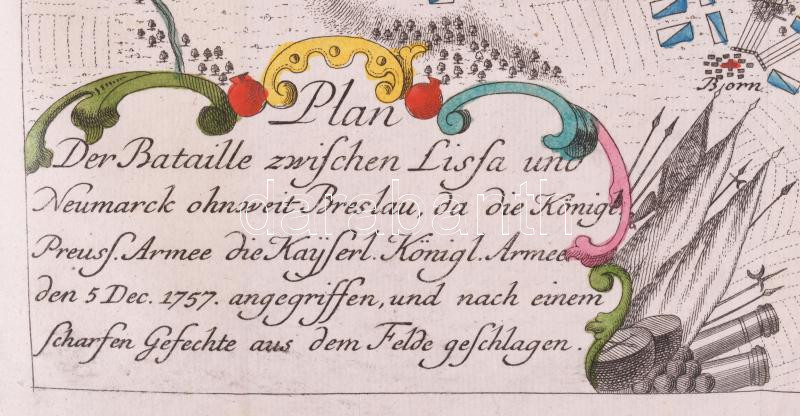 Björn
Plan
Der Bataille zwischen Lissa und
Neumarck ohnweit Breslau, da die Königl.
Preuss. Armee die Kayserl. Königl. Armee
den 5 Dec. 1757. angegriffen, und nach einem
scharfen Gefechte aus dem Felde geschlagen.
darabanth